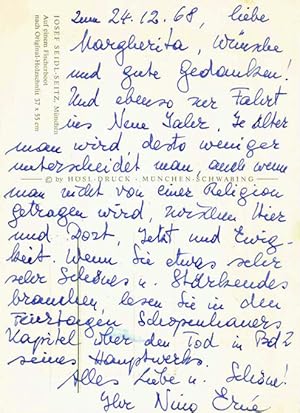 JOSEF SEIDL-SEITZ, München
Auf einem Fischerboot
nach Original-Holzschnitt 37 x 55 cm
© by HOSL-DRUCK · MÜNCHEN-SCHWABING
Zum 24.12.68, liebe
Margherita, Wünsche
und gute Gedanken!
Und ebenso zur Fahrt
ins Neue Jahr. Je älter
man wird, desto weniger
unterscheidet man, auch wenn
man nicht von einer Religion
getragen wird, zwischen Hier
und Dort, Jetzt und Ewig-
keit. Wenn Sie etwas sehr
sehr Schönes u. Stärkendes
brauchen, lesen Sie in den
Feiertagen Schopenhauers
Kapitel über den Tod in Bd 2
seines Hauptwerks.
Alles Liebe u. Schöne!
Ihr Nino Erné